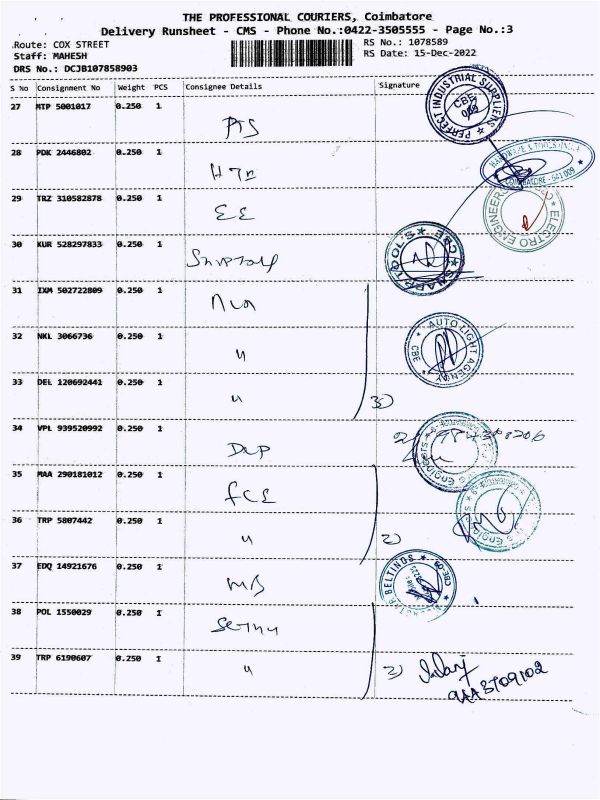 THE PROFESSIONAL COURIERS, Coimbatore
Delivery Runsheet - CMS - Phone No.:0422-3505555 - Page No.:3
Route: COX STREET
RS No.: 1078589
Staff: MAHESH
RS Date: 15-Dec-2022
DRS No.: DCJB107858903
S No Consignment No Weight PCS Consignee Details Signature
27 MTP 5001017 0.250 1
PERFECT INDUSTRIAL SUPPLIERS
CBE
28 PDK 2446802 0.250 1
COIMBATORE - 641 009
29 TRZ 310582878 0.250 1 EE
ELECTRO ENGINEERS
30 KUR 528297833 0.250 1
SHARP TOOL'S CBE
31 IXM 502722809 0.250 1
32 NKL 3066736 0.250 1 "
AUTO LIGHT AGENCY CBE
33 DEL 120692441 0.250 1 " 3)
34 VPL 939520992 0.250 1
Engineers
35 MAA 290181012 0.250 1 FCE
36 TRP 5807442 0.250 1 " 2)
Engineers
37 EDQ 14921676 0.250 1 MB
BELTINGS
38 POL 1550029 0.250 1
39 TRP 6190607 0.250 1 " 2)